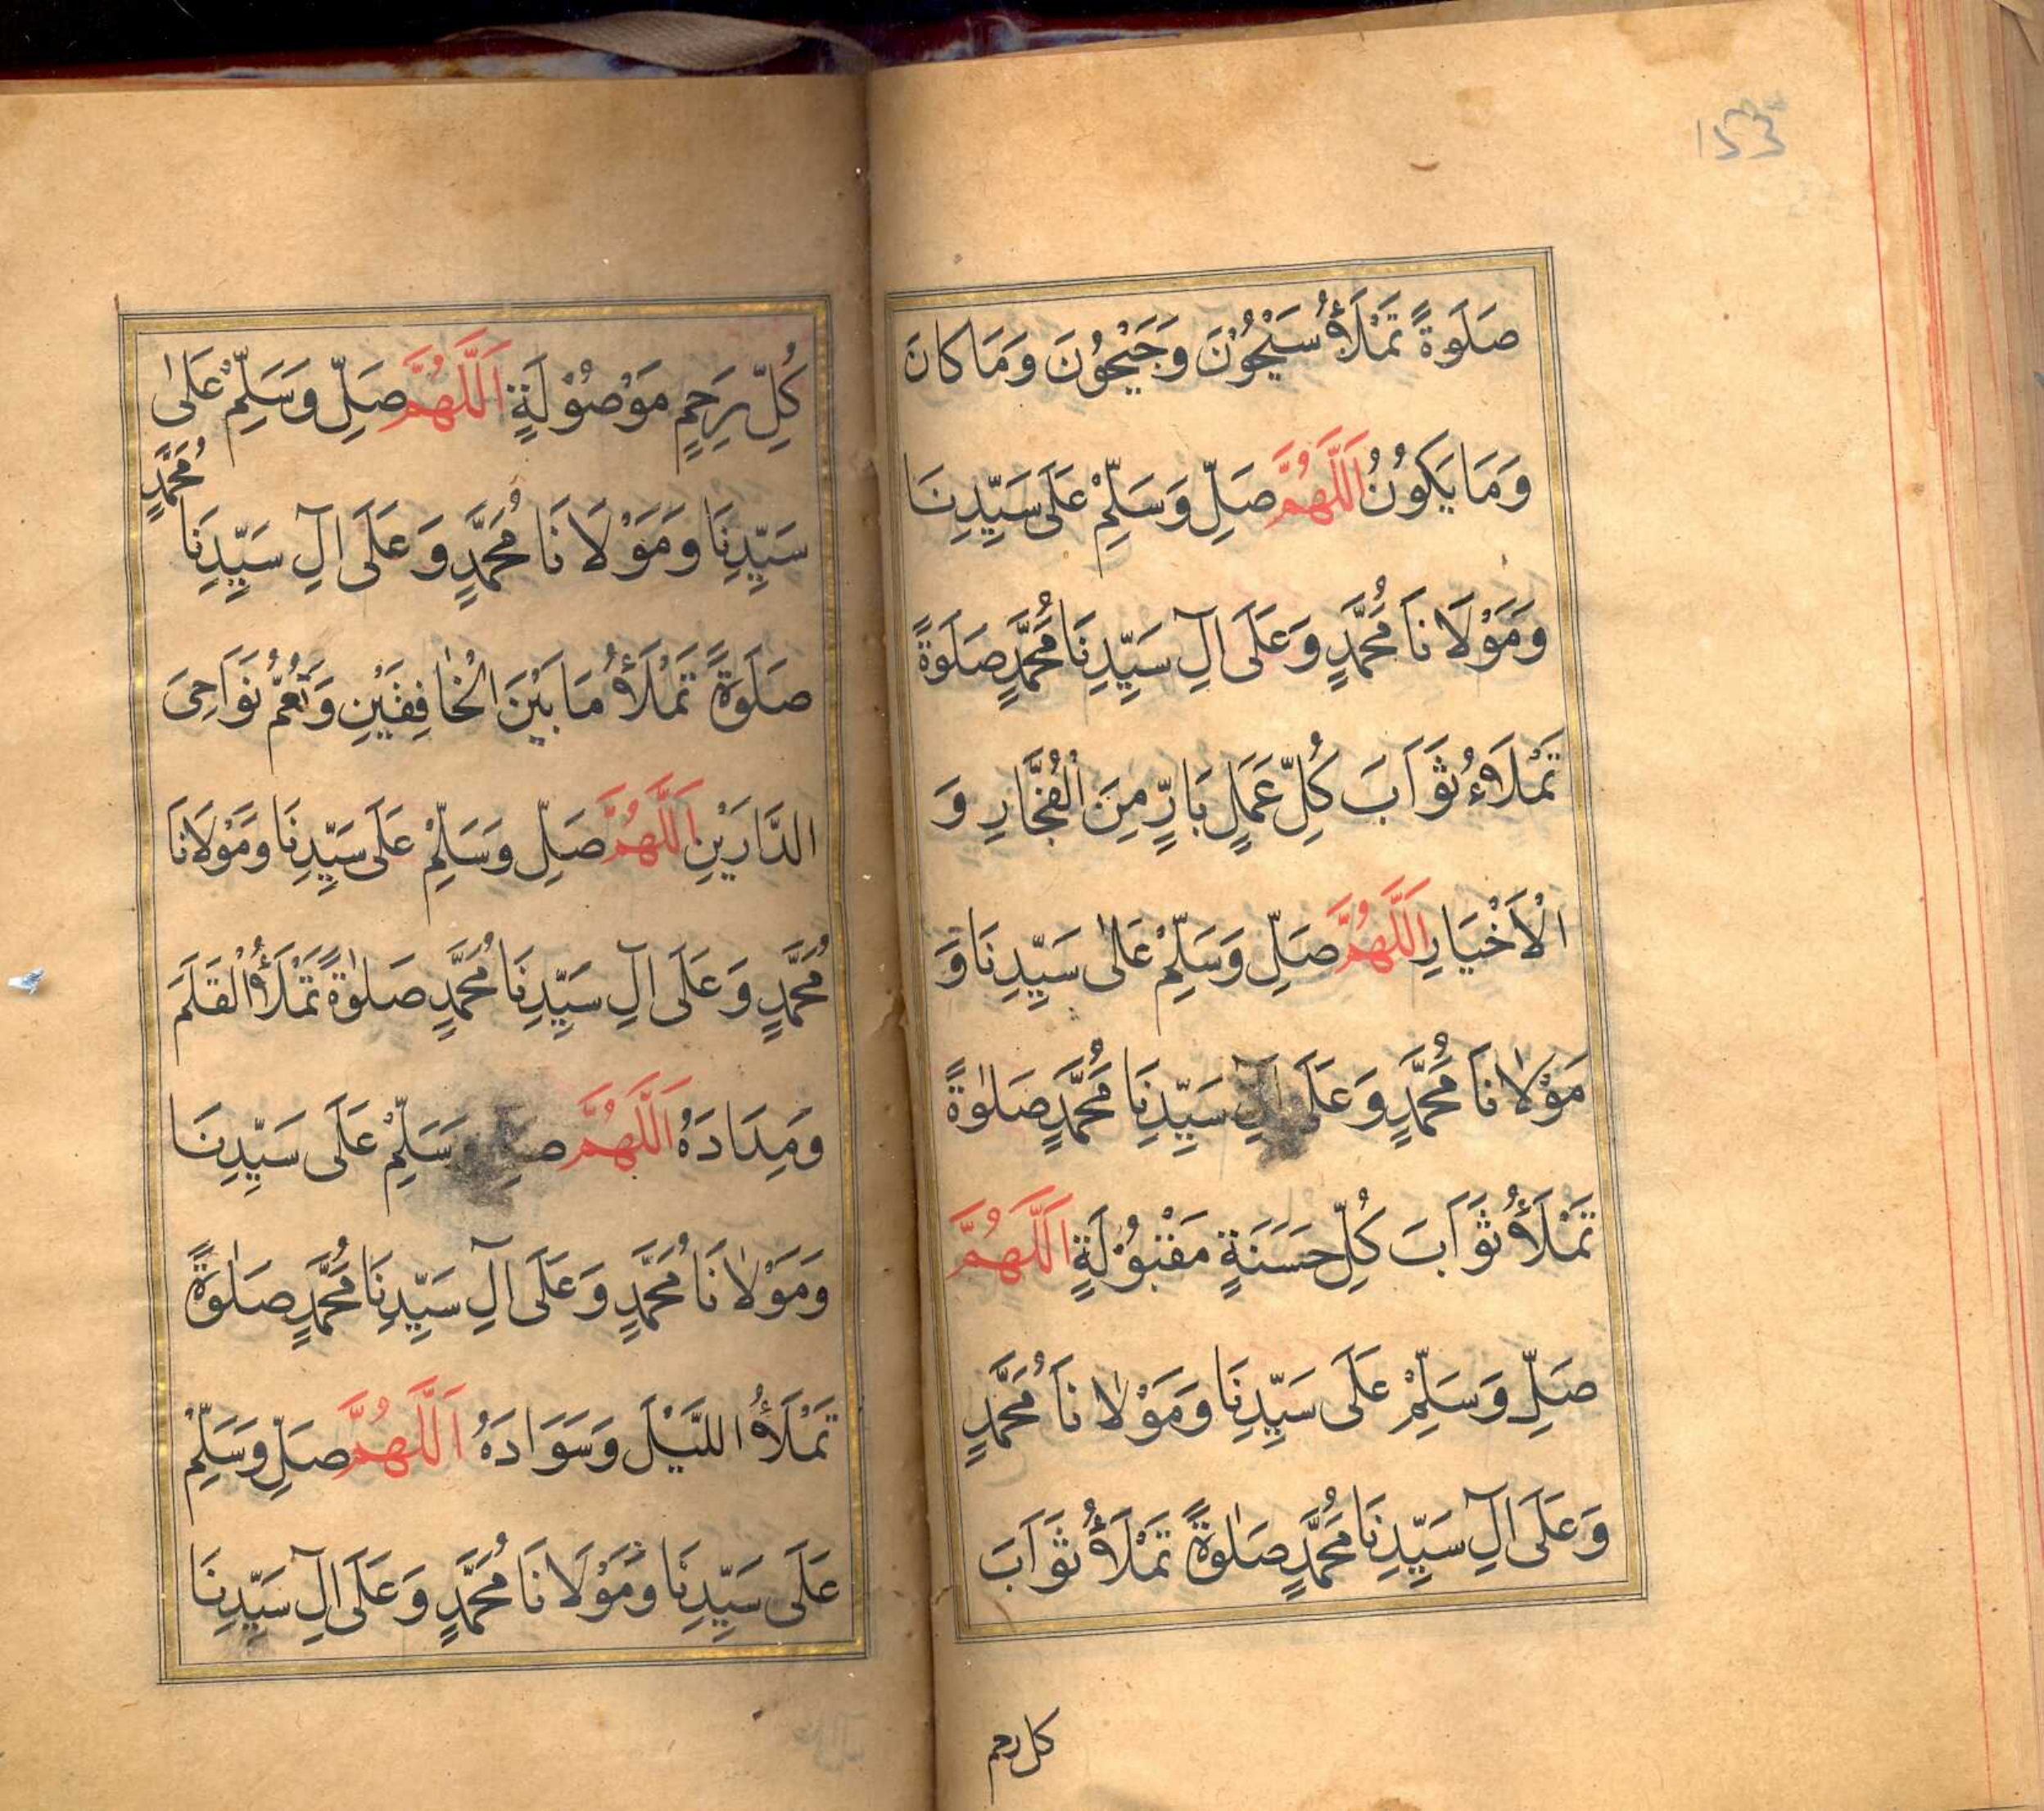 صَلَوةً تَمْلَأُ سَيْحُوْنَ وَجَيْحُوْنَ وَمَا كَانَ
وَمَا يَكُوْنُ اَللّٰهُمَّ صَلِّ وَسَلِّمْ عَلَى سَيِّدِنَا
وَمَوْلَانَا مُحَمَّدٍ وَعَلَى اٰلِ سَيِّدِنَا مُحَمَّدٍ صَلَوةً
تَمْلَاءُ ثَوَابَ كُلِّ عَمَلٍ بَارٍّ مِنَ الْفُجَّارِ وَ
الْاَخْيَارِ اَللّٰهُمَّ صَلِّ وَسَلِّمْ عَلٰى سَيِّدِنَا وَ
مَوْلٰانَا مُحَمَّدٍ وَعَلَى اٰلِ سَيِّدِنَا مُحَمَّدٍ صَلٰوةً
تَمْلَأُ ثَوَابَ كُلِّ حَسَنَةٍ مَقْبُوْلَةٍ اَللّٰهُمَّ
صَلِّ وَسَلِّمْ عَلَى سَيِّدِنَا وَمَوْلٰانَا مُحَمَّدٍ
وَعَلَى اٰلِ سَيِّدِنَا مُحَمَّدٍ صَلٰوةً تَمْلَأُ ثَوَابَ
كل رحم
كُلِّ رَحِمٍ مَوْصُوْلَةٍ اَللّٰهُمَّ صَلِّ وَسَلِّمْ عَلٰى
سَيِّدِنَا وَمَوْلَانَا مُحَمَّدٍ وَعَلَى اٰلِ سَيِّدِنَا مُحَمَّدٍ
صَلَوةً تَمْلَأُ مَا بَيْنَ الْخَافِقَيْنِ وَتَعُمُّ نَوَاحِىَ
الدَّارَيْنِ اَللّٰهُمَّ صَلِّ وَسَلِّمْ عَلَى سَيِّدِنَا وَمَوْلَانَا
مُحَمَّدٍ وَعَلَى اٰلِ سَيِّدِنَا مُحَمَّدٍ صَلٰوةً تَمْلَأُ الْقَلَمَ
وَمِدَادَهُ اَللّٰهُمَّ صَلِّ وَسَلِّمْ عَلَى سَيِّدِنَا
وَمَوْلٰانَا مُحَمَّدٍ وَعَلَى اٰلِ سَيِّدِنَا مُحَمَّدٍ صَلٰوةً
تَمْلَأُ اللَّيْلَ وَسَوَادَهُ اَللّٰهُمَّ صَلِّ وَسَلِّمْ
عَلَى سَيِّدِنَا وَمَوْلَانَا مُحَمَّدٍ وَعَلَى اٰلِ سَيِّدِنَا